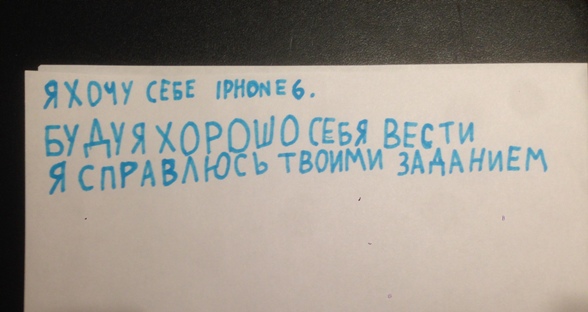 Я ХОЧУ СЕБЕ IPHONE 6.
БУДУ Я ХОРОШО СЕБЯ ВЕСТИ
Я СПРАВЛЮСЬ ТВОИМИ ЗАДАНИЕМ